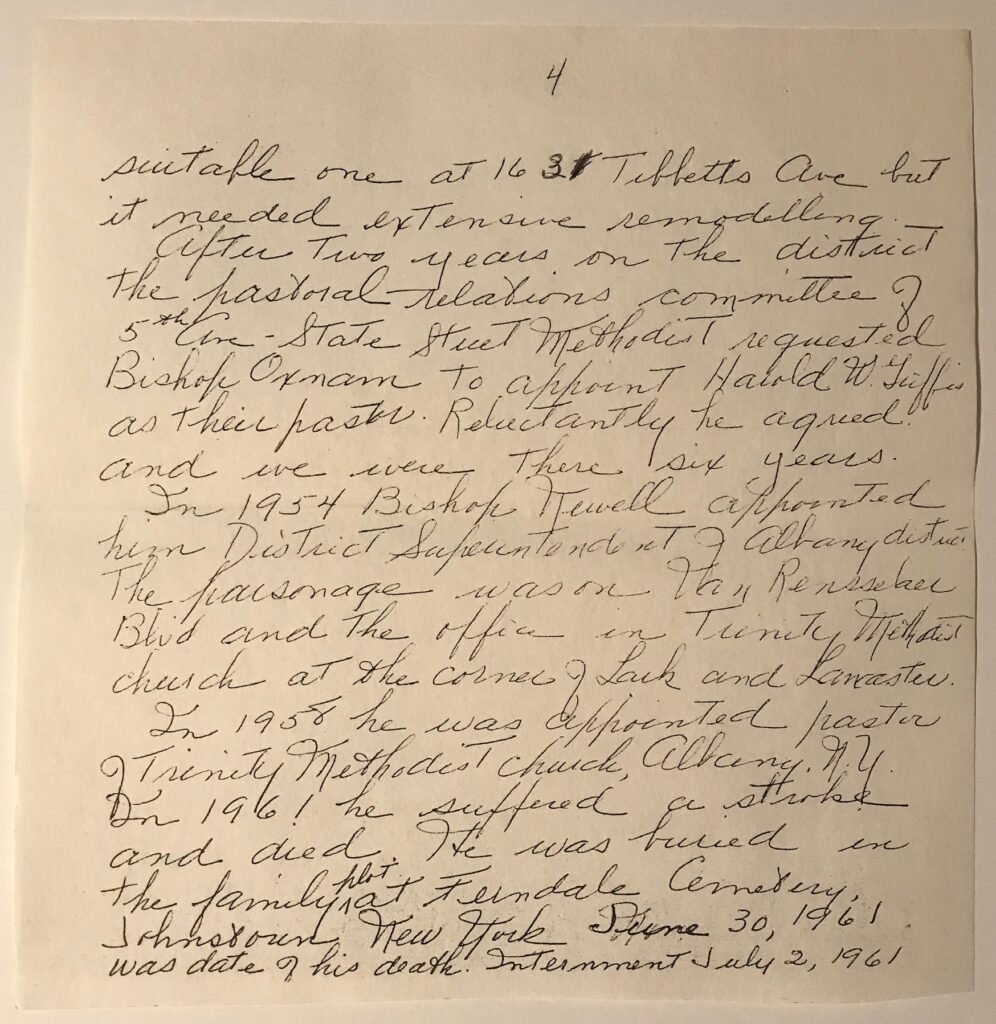 4
suitable one at 1631 Tibbetts Ave but
it needed extensive remodelling.
After two years on the district
the pastoral-relations committee of
5th Ave-State Street Methodist requested
Bishop Oxnam to appoint Harold W. Griffis
as their pastor. Reluctantly he agreed.
and we were there six years.
In 1954 Bishop Newell appointed
him District Superintendent of Albany district
The parsonage was on Van Rensselaer
Blvd and the office in Trinity Methodist
church at the corner of Lark and Lancaster.
In 1958 he was appointed pastor
of Trinity Methodist church, Albany. N.Y.
In 1961 he suffered a stroke
and died. He was buried in
the family plot at Ferndale Cemetery,
Johnstown, New York June 30, 1961
was date of his death. Internment July 2, 1961